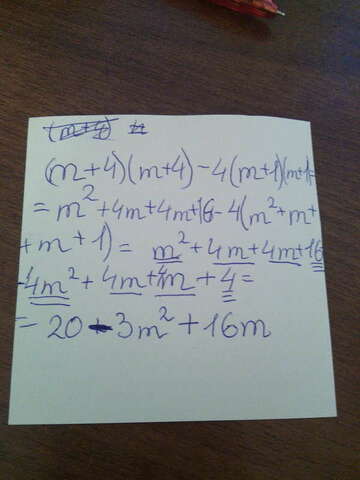 (m+4)
(m+4)(m+4)-4(m+1)(m+1)=
= m²+4m+4m+16-4(m²+m+
+m+1)= m²+4m+4m+16
-4m²+4m+4m+4=
= 20-3m²+16m